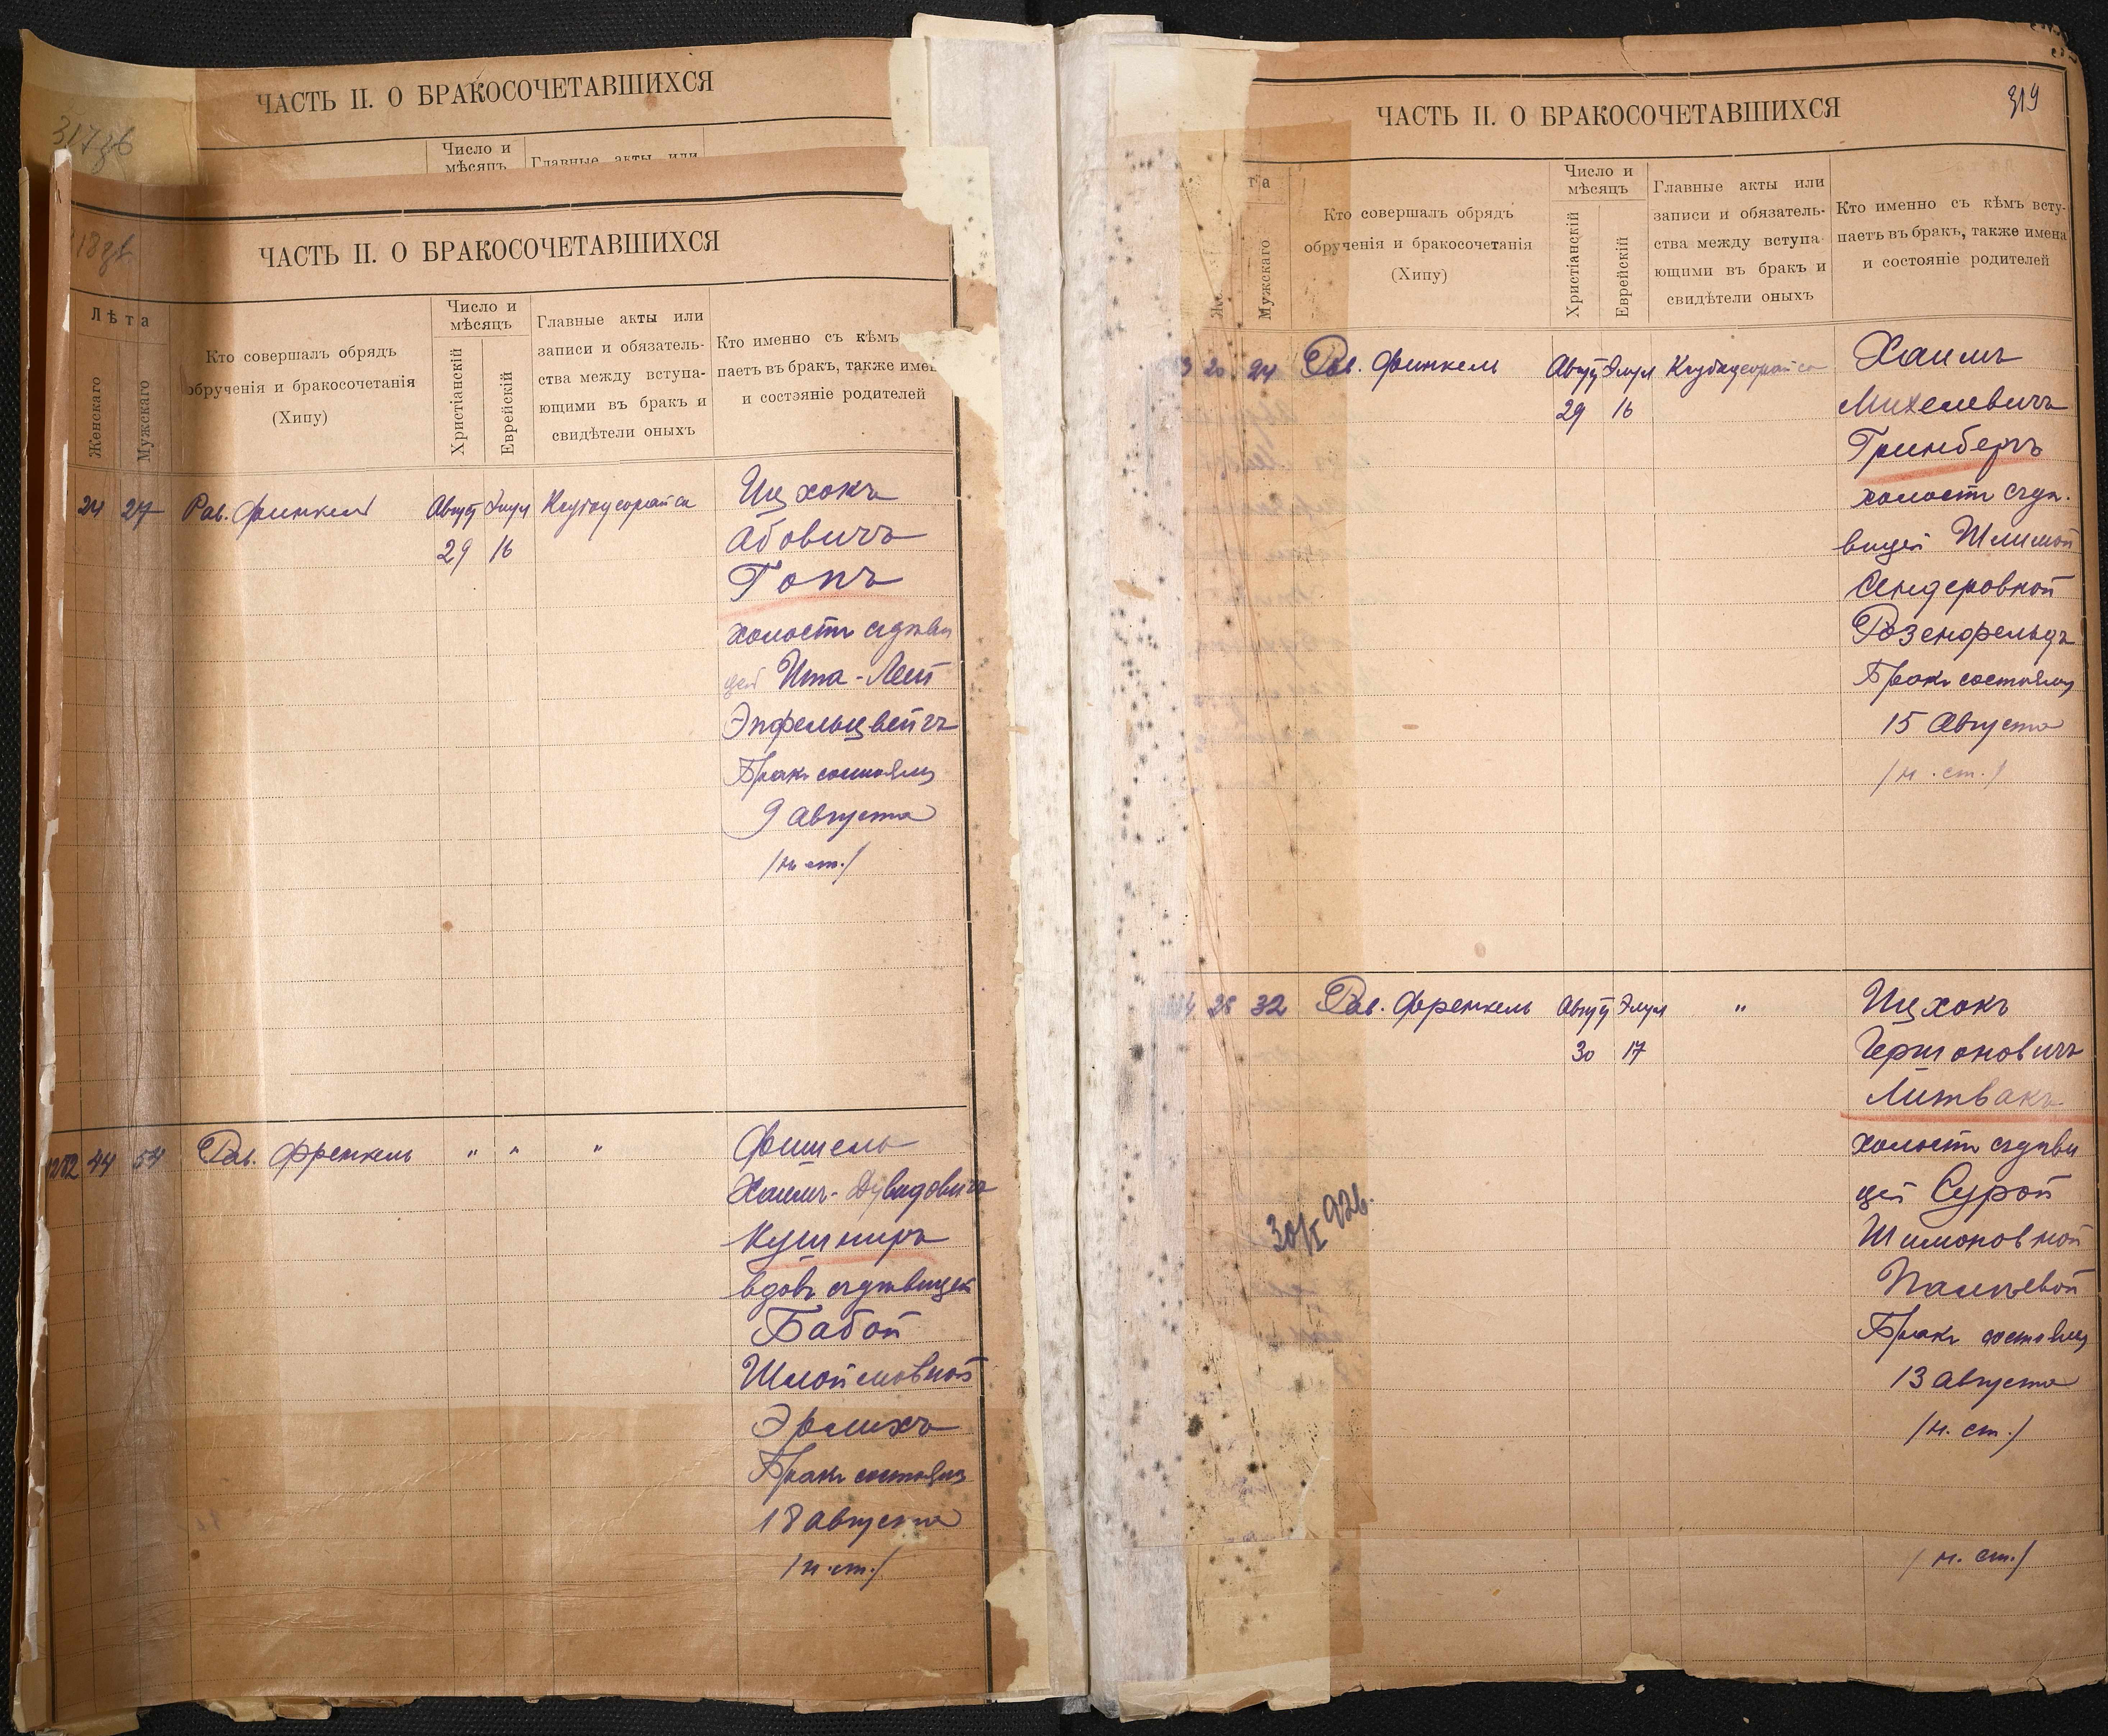 ЧАСТЬ II. О БРАКОСОЧЕТАВШИХСЯ
317об
Число и
мѣсяцъ
Главные акты или
ЧАСТЬ II. О БРАКОСОЧЕТАВШИХСЯ
Лѣта
Женскаго
Мужскаго
Кто совершалъ обрядъ
обрученія и бракосочетанія
(Хипу)
Число и
мѣсяцъ
Христіанскій
Еврейскій
Главные акты или
записи и обязатель-
ства между вступа-
ющими въ бракъ и
свидѣтели оныхъ
Кто именно съ кѣмъ
паетъ въ бракъ, также имен
и состояніе родителей
24 27 Рав. Финкель Август Элул
29 16
Ицхокъ
Абовичъ
Гопъ
холостъ съ дѣви
цей Ита-Леи
Эпфельцвейгъ
Бракъ состоялся
9 августа
/н. ст./
1212 44 54 Рав. Френкель " " "
Фишель
Хаимъ-Дувидовичъ
Кушниръ
вдовъ съ дѣвицей
Бабой
Шлоймовной
Эрлихъ
Бракъ состоялся
18 августа
/н. ст./
ЧАСТЬ II. О БРАКОСОЧЕТАВШИХСЯ
319
та
Мужскаго
Кто совершалъ обрядъ
обрученія и бракосочетанія
(Хипу)
Число и
мѣсяцъ
Христіанскій
Еврейскій
Главные акты или
записи и обязатель-
ства между вступа
ющими въ бракъ и
свидѣтели оныхъ
Кто именно съ кѣмъ всту-
паетъ въ бракъ, также имена
и состояніе родителей
3 20 24 Рав. Финкель Август Элул
29 16
Хаимъ
Михелевичъ
Гринбергъ
холостъ съ дѣ.
вицей Шлимой
Сендеровной
Розенфельдъ
Бракъ состоялся
15 Августа
/н. ст./
28 32 Рав. Френкель Август Элул "
30 17
Ицхокъ
Гершоновичъ
Литвакъ
холостъ съ дѣви
цей Сурой
Шимоновной
Пальевой
Бракъ состоялся
13 августа
/н. ст./
30/I 926.
/н. ст./